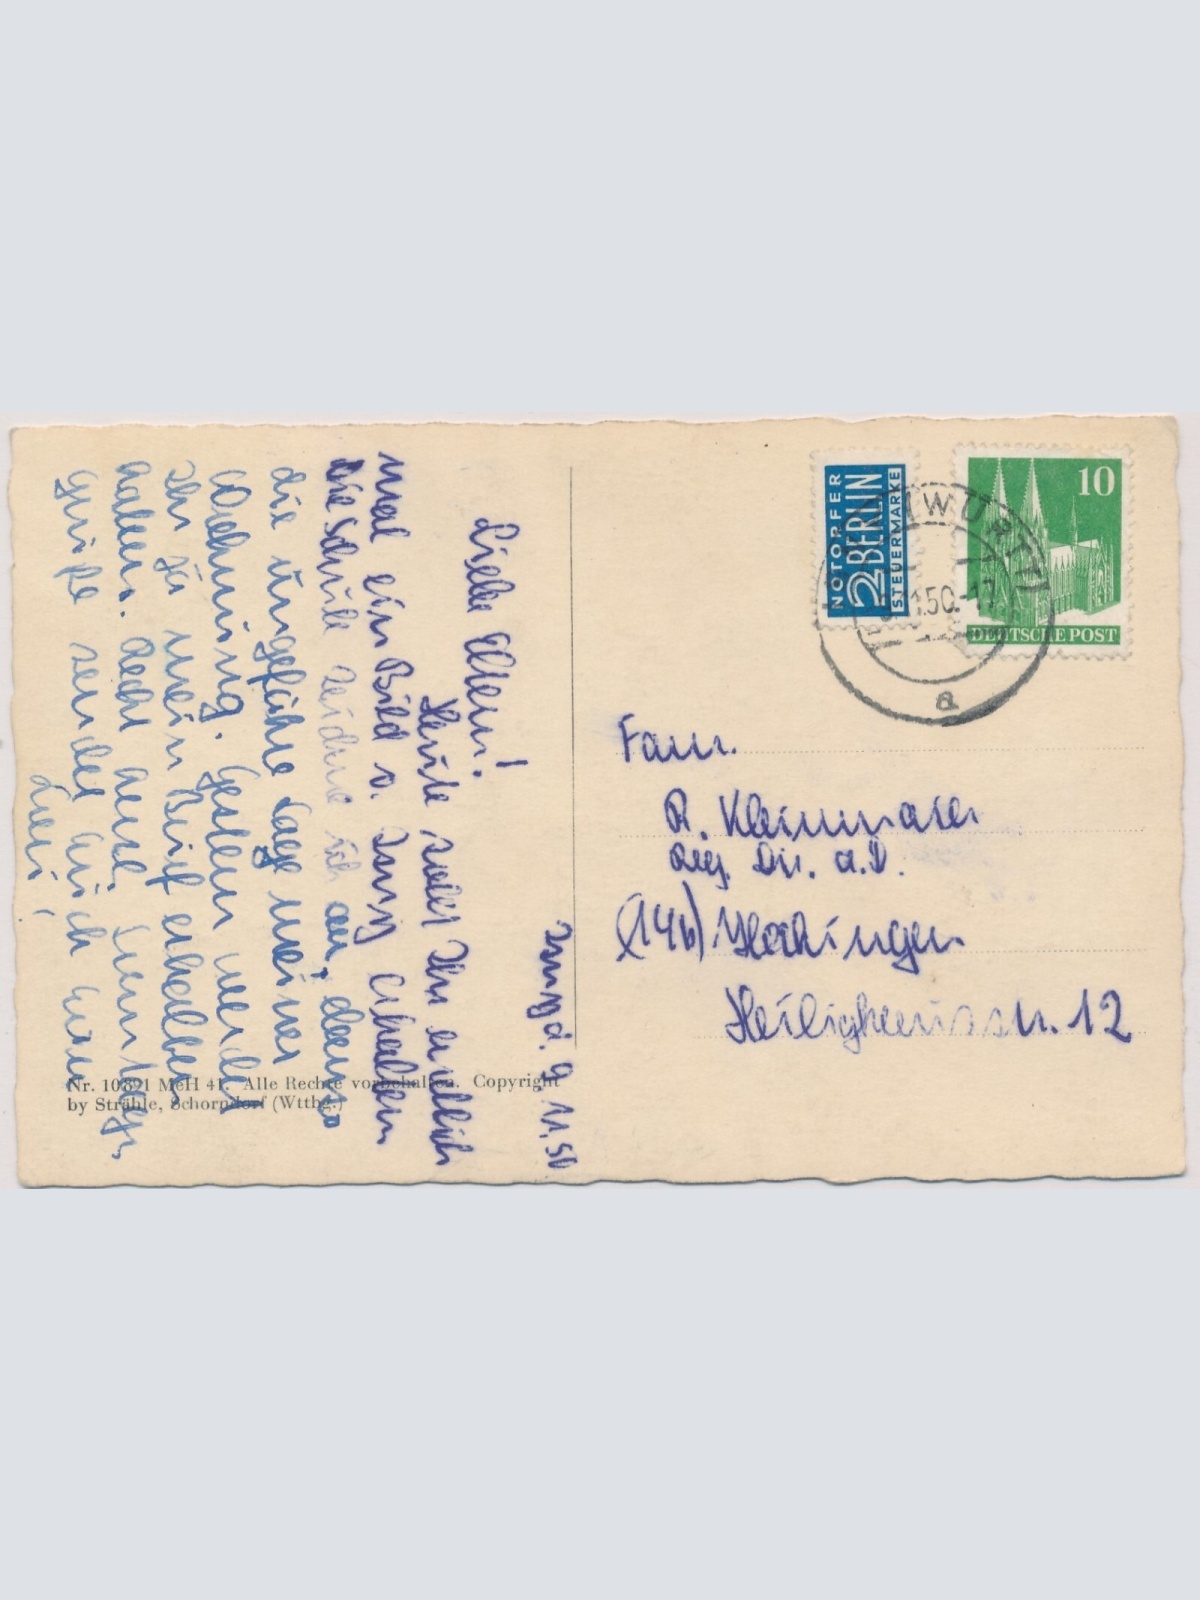 Isny d. 9.11.50
Liebe Eltern!
Heute sollt Ihr endlich
mal ein Bild v. Isny erhalten
die Schule zeichne ich an, denn
die ungefähre Lage meiner
Wohnung. Gestern werdet
Ihr ja mein Brief erhalten
haben. Recht herzl.
Grüße sendet Euch Eure
NOTOPFER
2 BERLIN
STEUERMARKE
10
DEUTSCHE POST
(WÜRTT)
.50.-17
a
Fam.
R. Kleinmaier
Reg. Dir. a.D.
(14b) Hechingen
Heiligkreuzstr. 12
Nr. 10821 MeH 41. Alle Rechte vorbehalten. Copyright
by Strähle, Schorndorf (Wttbg.)